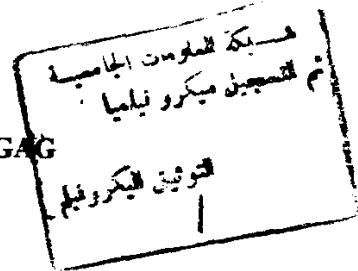 شبكة المعلومات الجامعية
تم التسجيل ميكروفيلميا
GAG
التوثيق الميكروفيلمي